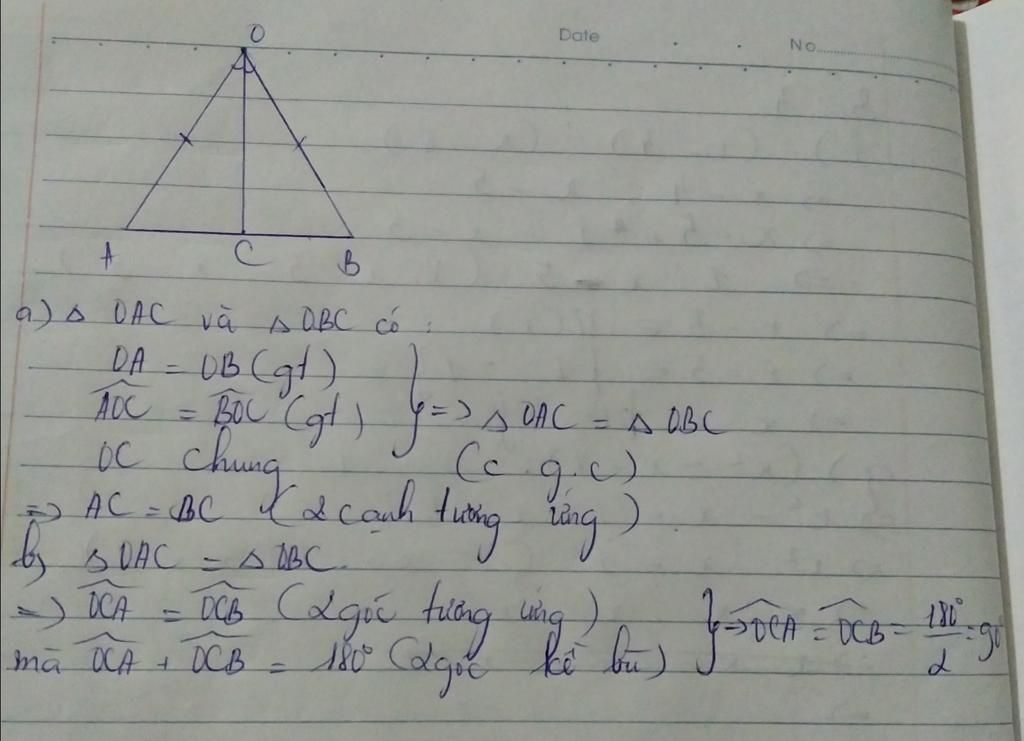 Date No
O
A C B
a) △ OAC và △ OBC có :
OA = OB (gt)
\widehat{AOC} = \widehat{BOC} (gt) } => △ OAC = △ OBC
OC chung (c.g.c)
=> AC = BC (2 cạnh tương ứng)
b) △ OAC = △ OBC.
=> \widehat{OCA} = \widehat{OCB} (2 góc tương ứng) } => \widehat{OCA} = \widehat{OCB} = \frac{180°}{2} = 90
mà \widehat{OCA} + \widehat{OCB} = 180° (2 góc kề bù)